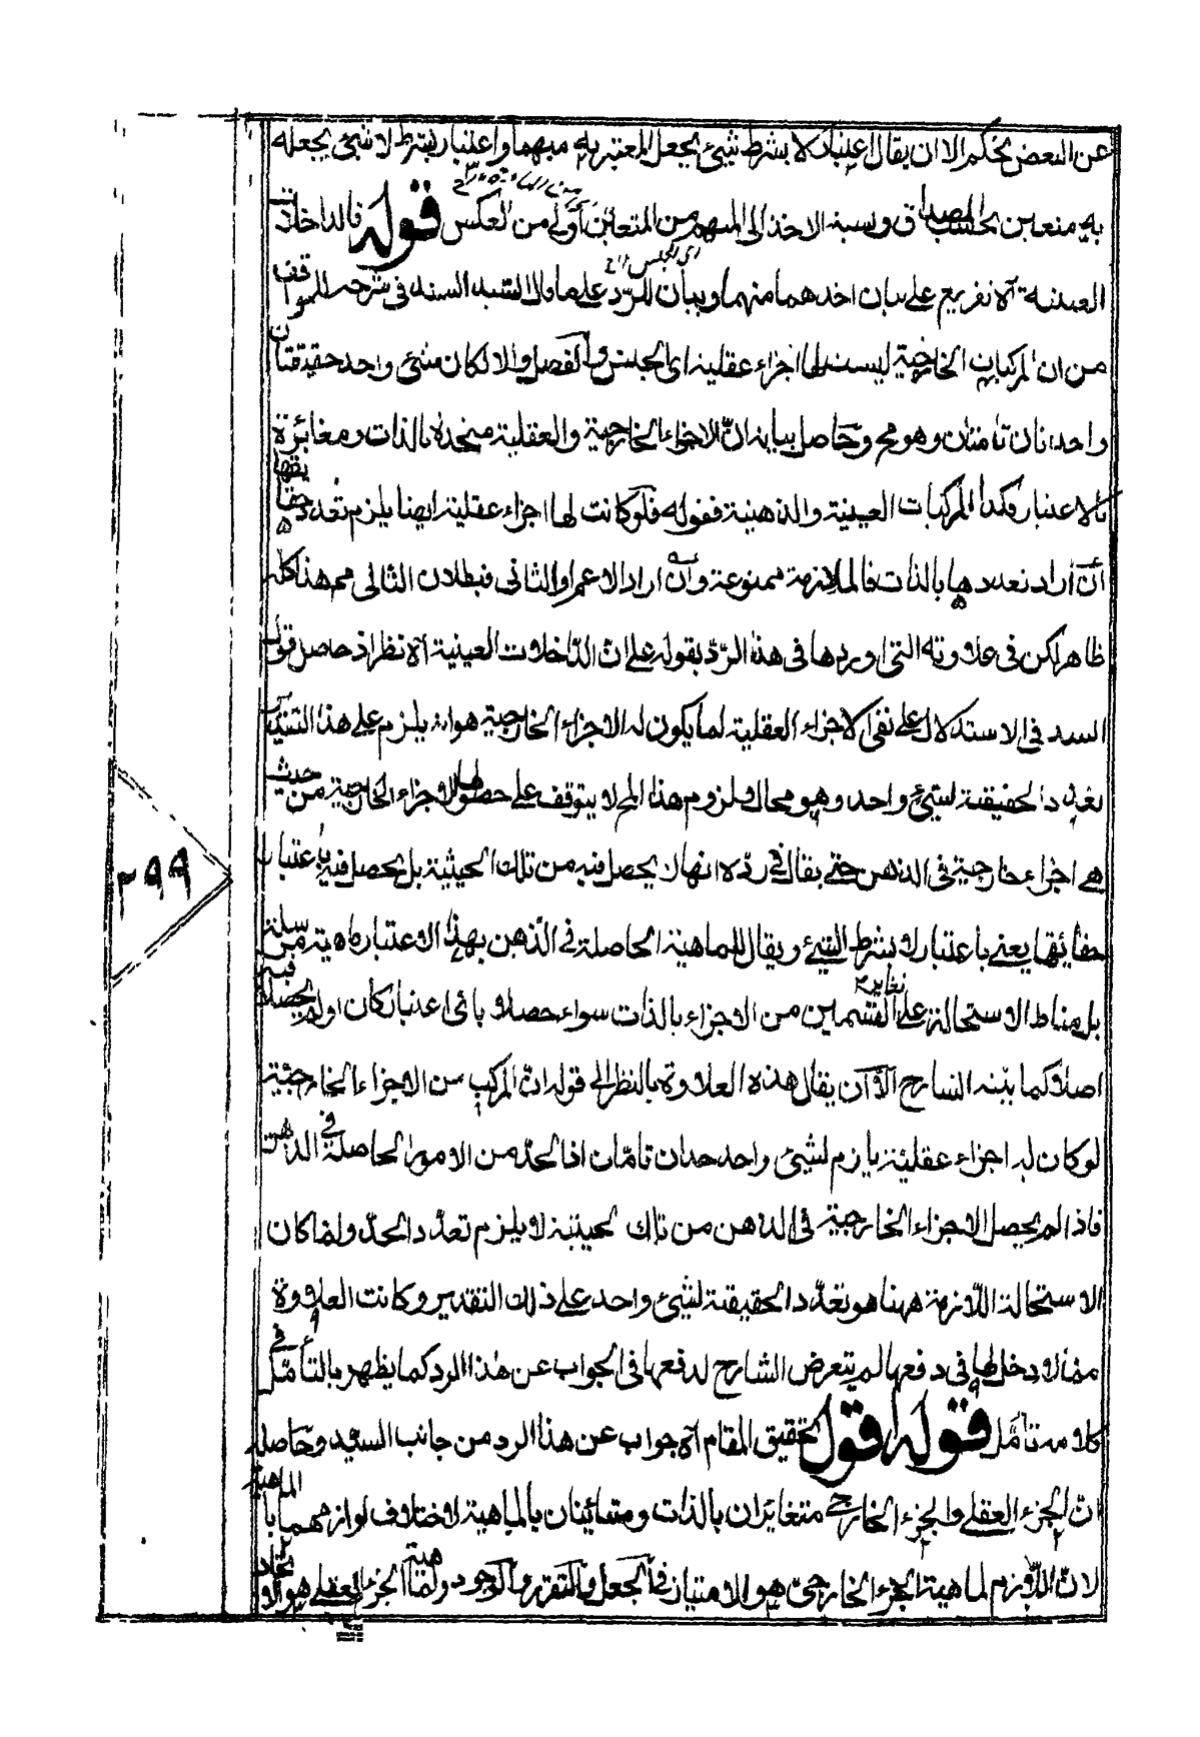 عن البعض تحكم الا ان يقال اعتبار لا بشرط شيئ يجعل المعتبر به مبهما واعتبار بشرط لا شيئ يجعله
به متعين بحسب المصداق ونسبة الاخذ الى المبهم من المتعين اولى من العكس قوله فالداخلات
العينية آه تفريع على بيان اخذهما منهما وبيان للرد على ما قال السيد السند فى شرحه للمواقف
من ان المركبات الخارجية ليست لها اجزاء عقلية اى الجنس والفصل والا لكان شيئ واحد حقيقتان
واحدتان تامتان وهو مح وحاصل بيانه ان الاجزاء الخارجية والعقلية متحدة بالذات ومغائرة
بالاعتبار وكذا المركبات العينية والذهنية فقوله فلو كانت لها اجزاء عقلية ايضا يلزم تعدد حقائقها
ان اراد تعددها بالذات فالملازمة ممنوعة وان اراد الاعم او الثانى فبطلان التالى مم هذا كله
ظاهر لكن فى علاوته التى اوردها فى هذا الرد بقوله على ان الداخلات العينية آه نظر اذ حاصل قول
السيد فى الاستدلال على نفى الاجزاء العقلية لما يكون له الاجزاء الخارجية هو انه يلزم على هذا التقدير
تعدد الحقيقة لشيئ واحد وهو محال ولزوم هذا المح لا يتوقف على حصول الاجزاء الخارجية من حيث
هى اجزاء خارجية فى الذهن حتى يقال فى رده انها لا يحصل فيه من تلك الحيثية بل يحصل فيه باعتبار
حقائقها يعنى باعتبار لا بشرط الشيئ ويقال للماهية الحاصلة فى الذهن بهذا الاعتبار ماهية مرسلة
بل مناط الاستحالة على تغاير القسمين من الاجزاء بالذات سواء حصلا باى اعتبار كان او لم يحصلا فيه
اصلا كما بينه الشارح الا ان يقال هذه العلاوة بالنظر الى قوله ان المركب من الاجزاء الخارجية
لو كان له اجزاء عقلية يلزم لشيئ واحد حدان تامان اذ الحد من الامور الحاصلة فى الذهن
فاذا لم يحصل الاجزاء الخارجية فى الذهن من تلك الحيثية لا يلزم تعدد الحد ولما كان
الاستحالة اللازمة ههنا هو تعدد الحقيقة لشيئ واحد على ذلك التقدير وكانت العلاوة
مما لا دخل لها فى دفعها لم يتعرض الشارح لدفعها فى الجواب عن هذا الرد كما يظهر بالتأمل فى
كلامه تأمل قوله اقول تحقيق المقام آه جواب عن هذا الرد من جانب السيد وحاصله
ان الجزء العقلى والجزء الخارجى متغايران بالذات ومتبائنان بالماهية لاختلاف لوازمهما بالماهية
لان اللازم لماهية الجزء الخارجى هو الامتياز فى الجعل والتقرر والوجود ولماهية الجزء العقلى هو الاتحاد
٢٩٩